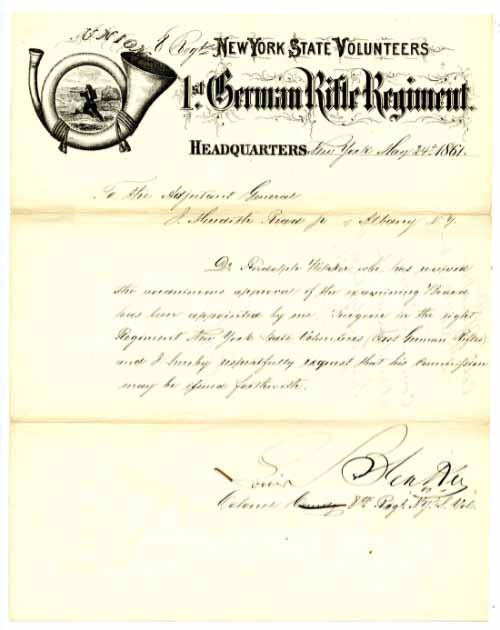 8 Regt. NEW YORK STATE VOLUNTEERS
1st. German Rifle Regiment.
HEADQUARTERS New York May 24th 1861.
To the Adjutant General
J. Meredith Read jr of Albany N.Y.
Dr Rudolph who has received
the unanimous approval of the examining Board
has been appointed by me Surgeon in the eight
Regiment New York State Volunteers (First German Rifles)
and I hereby respectfully request that his commission
may be issued forthwith.
Louis Blenker
Colonel 8th Regt. N.Y. S. Vol.